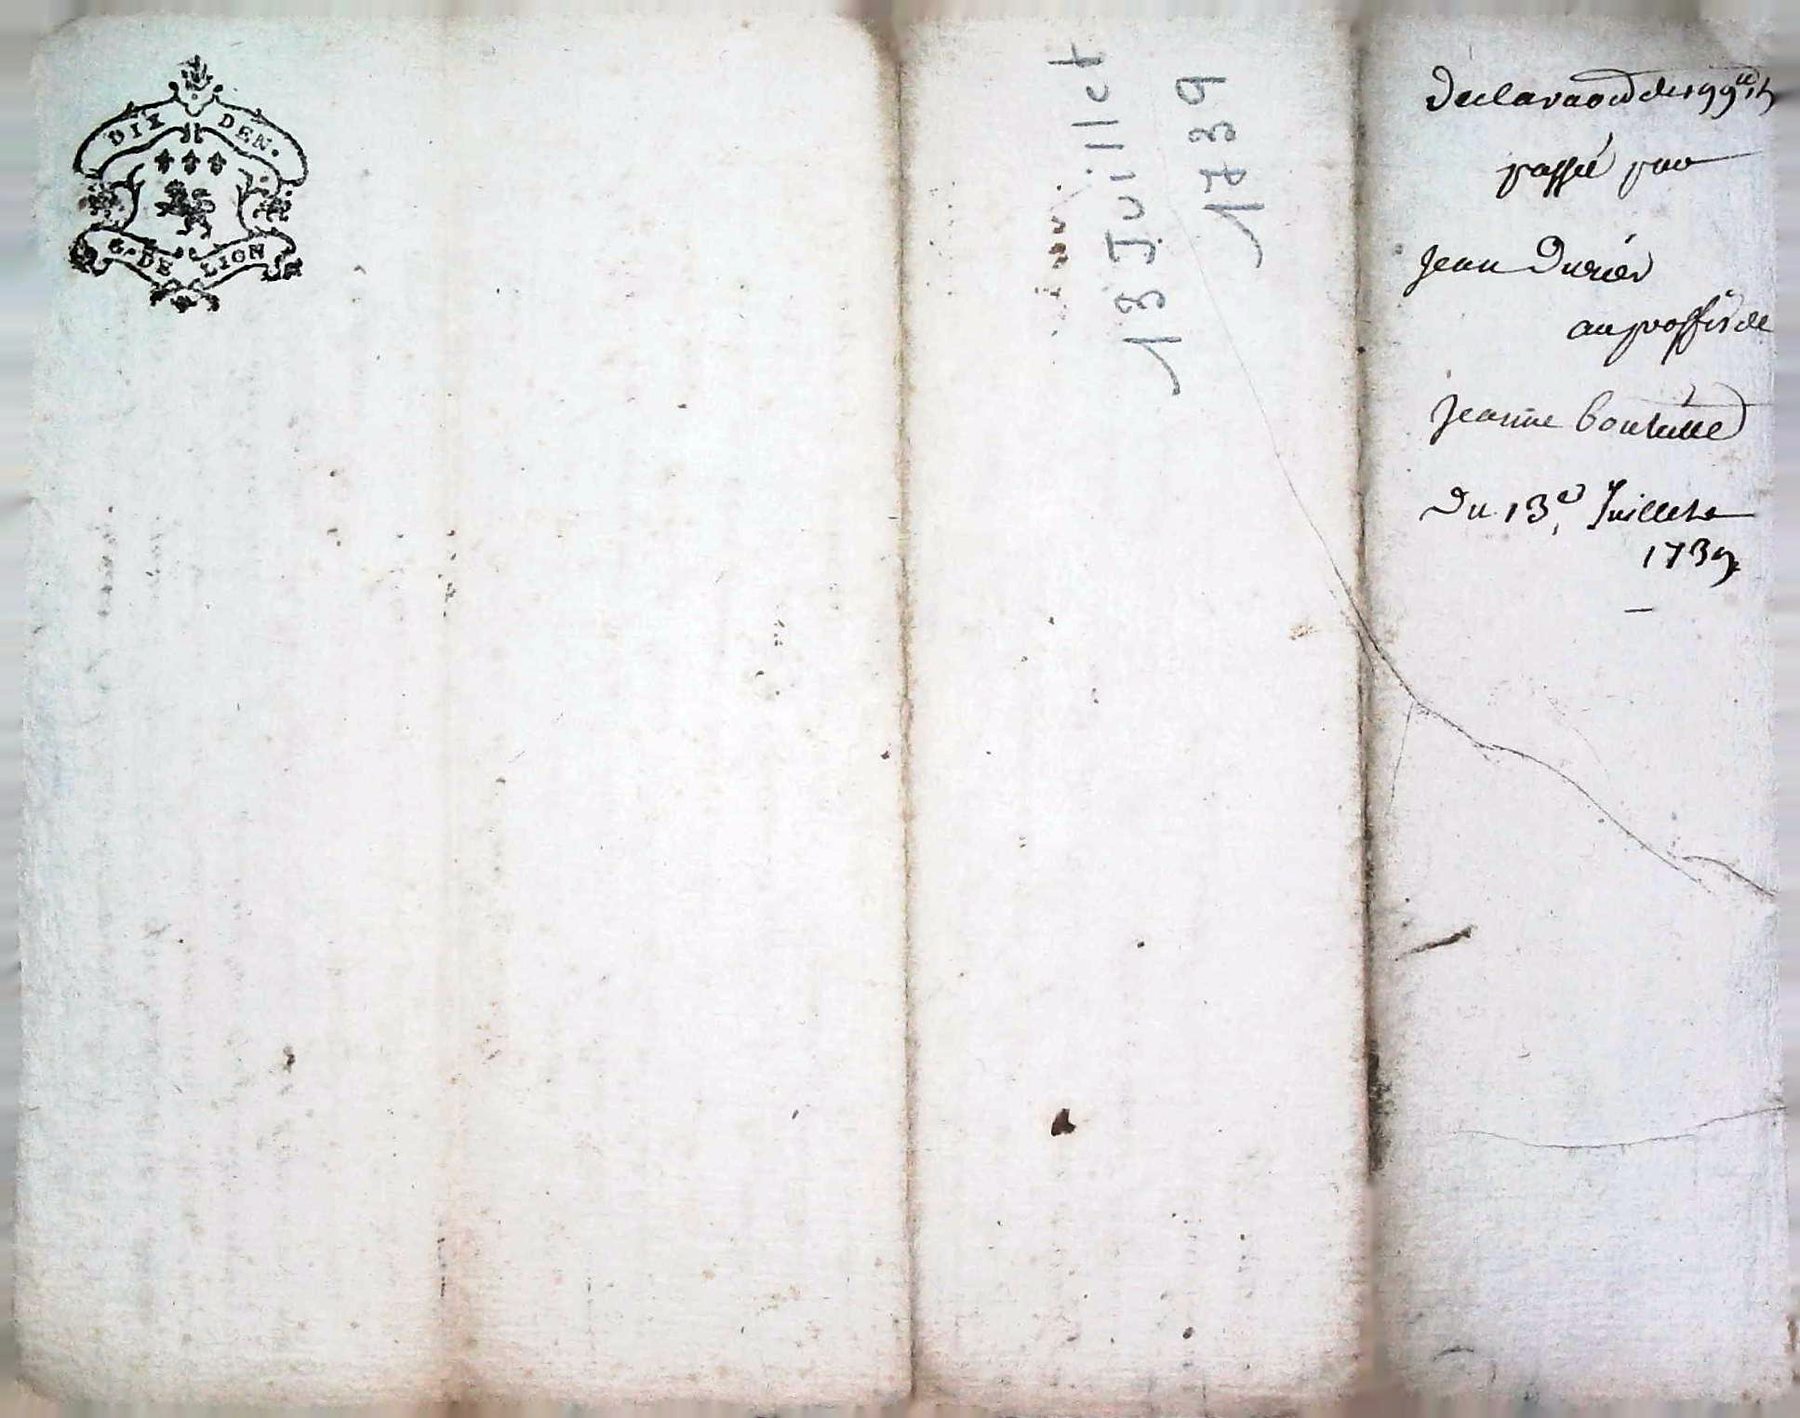 DIX DEN.
G. DE LION
13 Juillet
1739
Declaraõn de 199ᵗᵗ 1ˢ
passée par
Jean Durier
au proffit de
Jeanne
Du 13ᵉ Juillet
1739